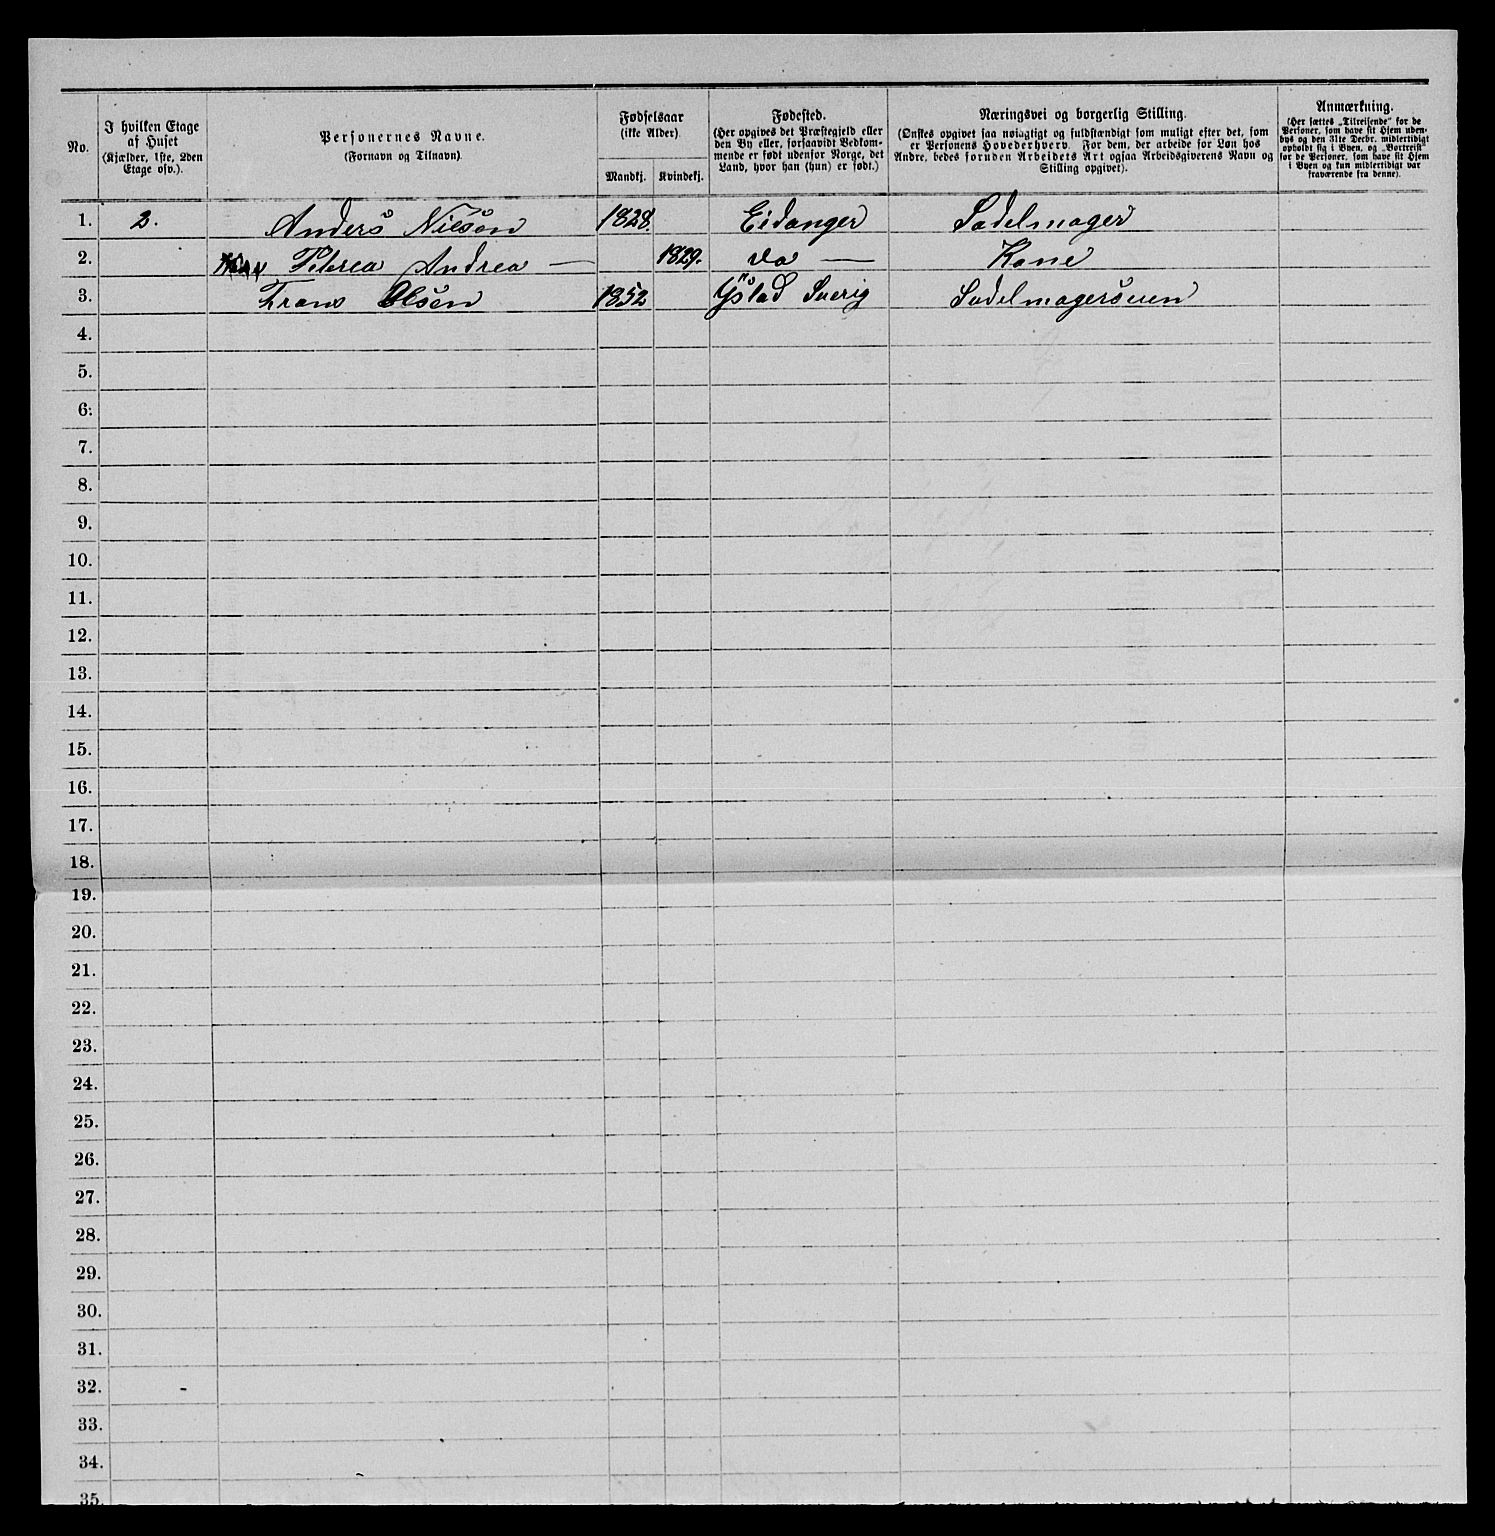 No.
I hvilken Etage
af Huset
(Kjælder, 1ste, 2den
Etage osv.).
Personernes Navne.
(Fornavn og Tilnavn).
Fødselsaar
(ikke Alder).
Mandkj. Kvindekj.
Fødested.
(Her opgives det Præstegjeld eller
den By eller, forsaavidt Vedkom-
mende er født udenfor Norge, det
Land, hvor han (hun) er født.)
Næringsvei og borgerlig Stilling.
(Ønskes opgivet saa nøiagtigt og fuldstændigt som muligt efter det, som
er Personens Hovederhverv. For dem, der arbeide for Løn hos
Andre, bedes foruden Arbeidets Art ogsaa Arbeidsgiverens Navn og
Stilling opgivet).
Anmærkning.
(Her sættes „Tilreisende“ for de
Personer, som have sit Hjem uden-
bys og den 31te Decbr. midlertidigt
opholdt sig i Byen, og „Bortreist“
for de Personer, som have sit Hjem
i Byen og kun midlertidigt var
fraværende fra denne).
1. 2. Anders Nilsøn 1828. Eidanger Sadelmager
2. Petrea Andrea — 1829. do — Kone
3. Frans Olsen 1852 Ystad Sverig Sadelmagersven
4.
5.
6.
7.
8.
9.
10.
11.
12.
13.
14.
15.
16.
17.
18.
19.
20.
21.
22.
23.
24.
25.
26.
27.
28.
29.
30.
31.
32.
33.
34.
35.